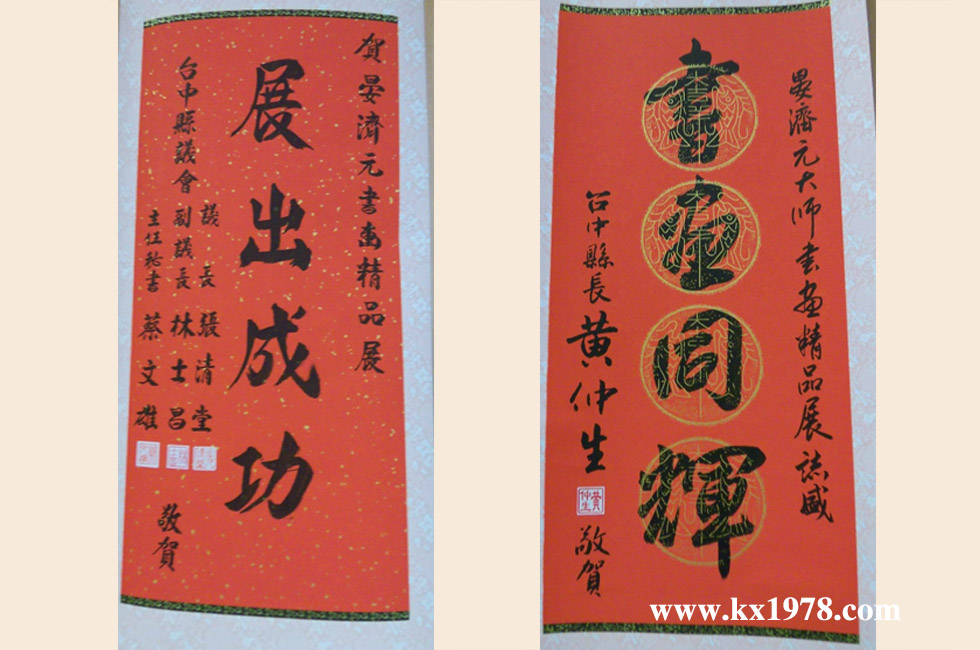 賀晏濟元書畫精品展
展出成功
台中縣議會
議長張清堂
副議長林士昌
主任秘書蔡文雄
敬賀
晏濟元大师书画精品展誌盛
書畫同輝
台中縣長黄仲生
敬賀
www.kx1978.com